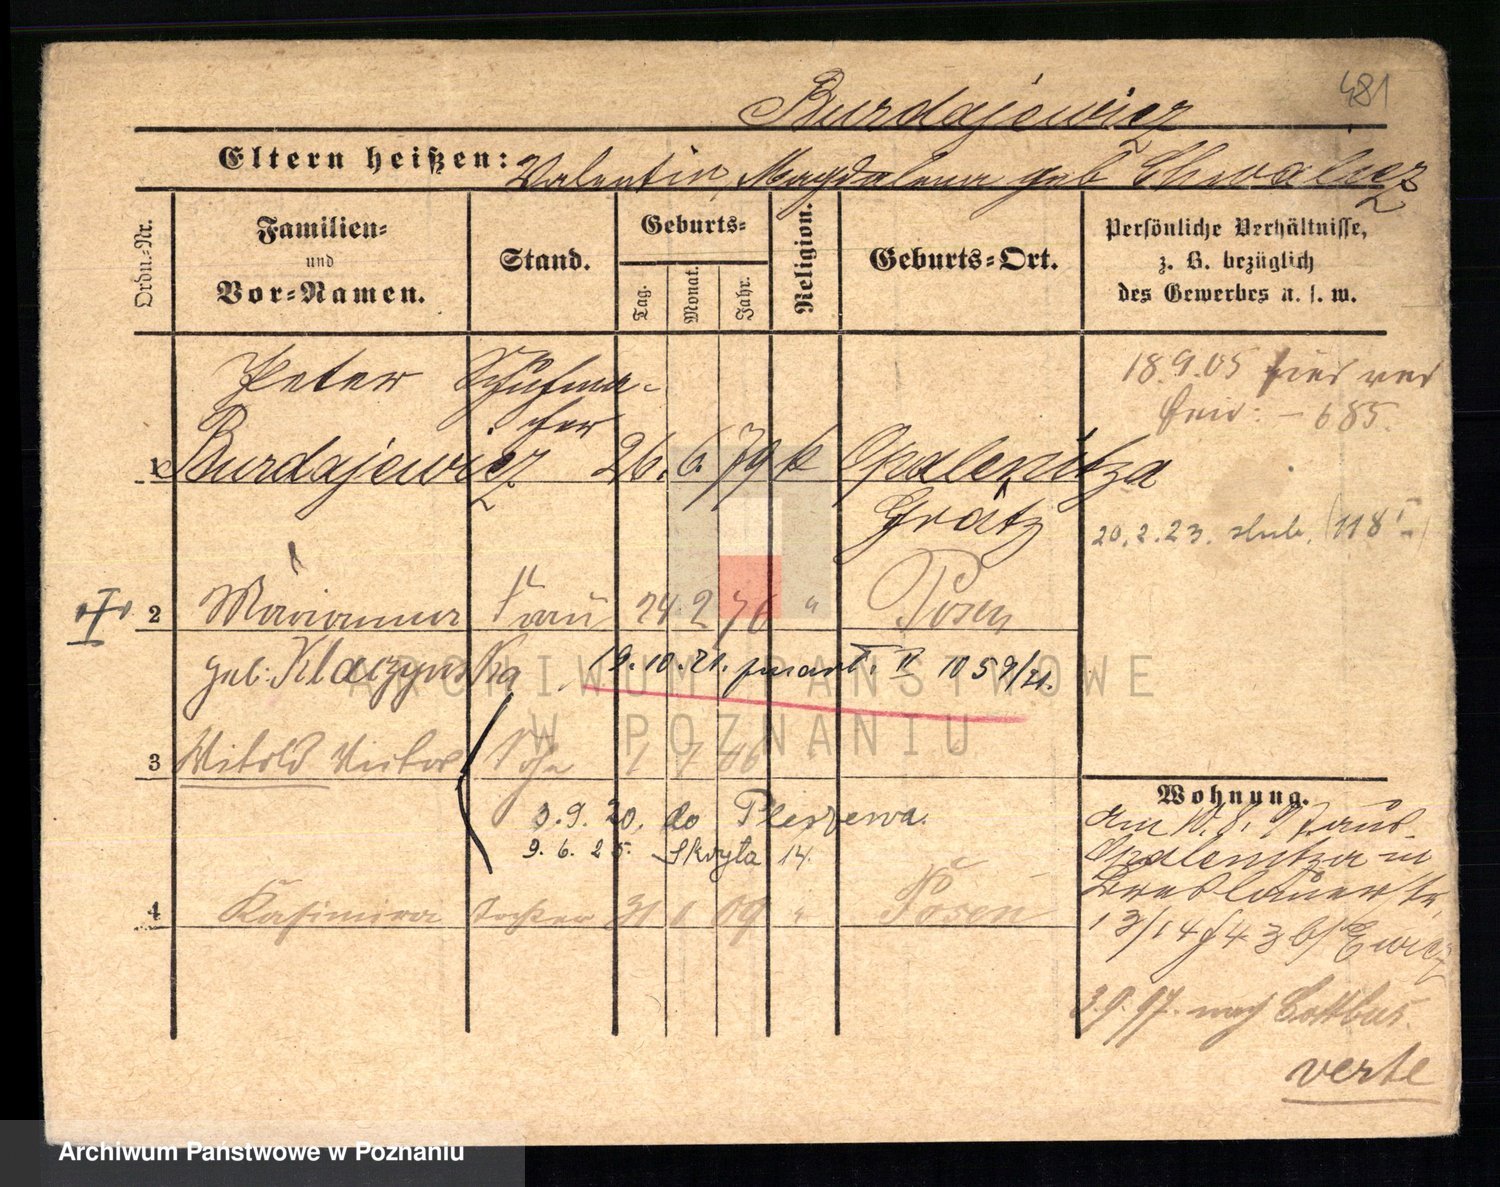 481
Burdajewicz
Eltern heißen: Valentin, Magdalena geb Chwalisz
Ordn.-Nr.
Familien- und Vor-Namen.
Stand.
Geburts-
Tag.
Monat.
Jahr.
Religion.
Geburts-Ort.
Persönliche Verhältnisse,
z. B. bezüglich
des Gewerbes u. s. w.
Peter Schuhma-
cher
1 Burdajewicz 26. 6. 79 k Opalenitza
Grätz
18.9.05 hier
685.
20.2.23. (118
2 Marianna Frau 24 2 76 " Posen
geb: Klaczynska 19.10.21. zmarł. II 1059/21.
3 Witold Victor Sohn 1 7 06
3.9.20. do Pleszewa.
9.6.25. Skryta 14.
4 Kasimira Tochter 31 1 09 " Posen
Wohnung.
Am 10.8.97 aus
Opalenitza in
Breslauerstr.
13/14
3.9.97. nach Cottbus.
verte
ARCHIWUM PAŃSTWOWE
W POZNANIU
Archiwum Państwowe w Poznaniu